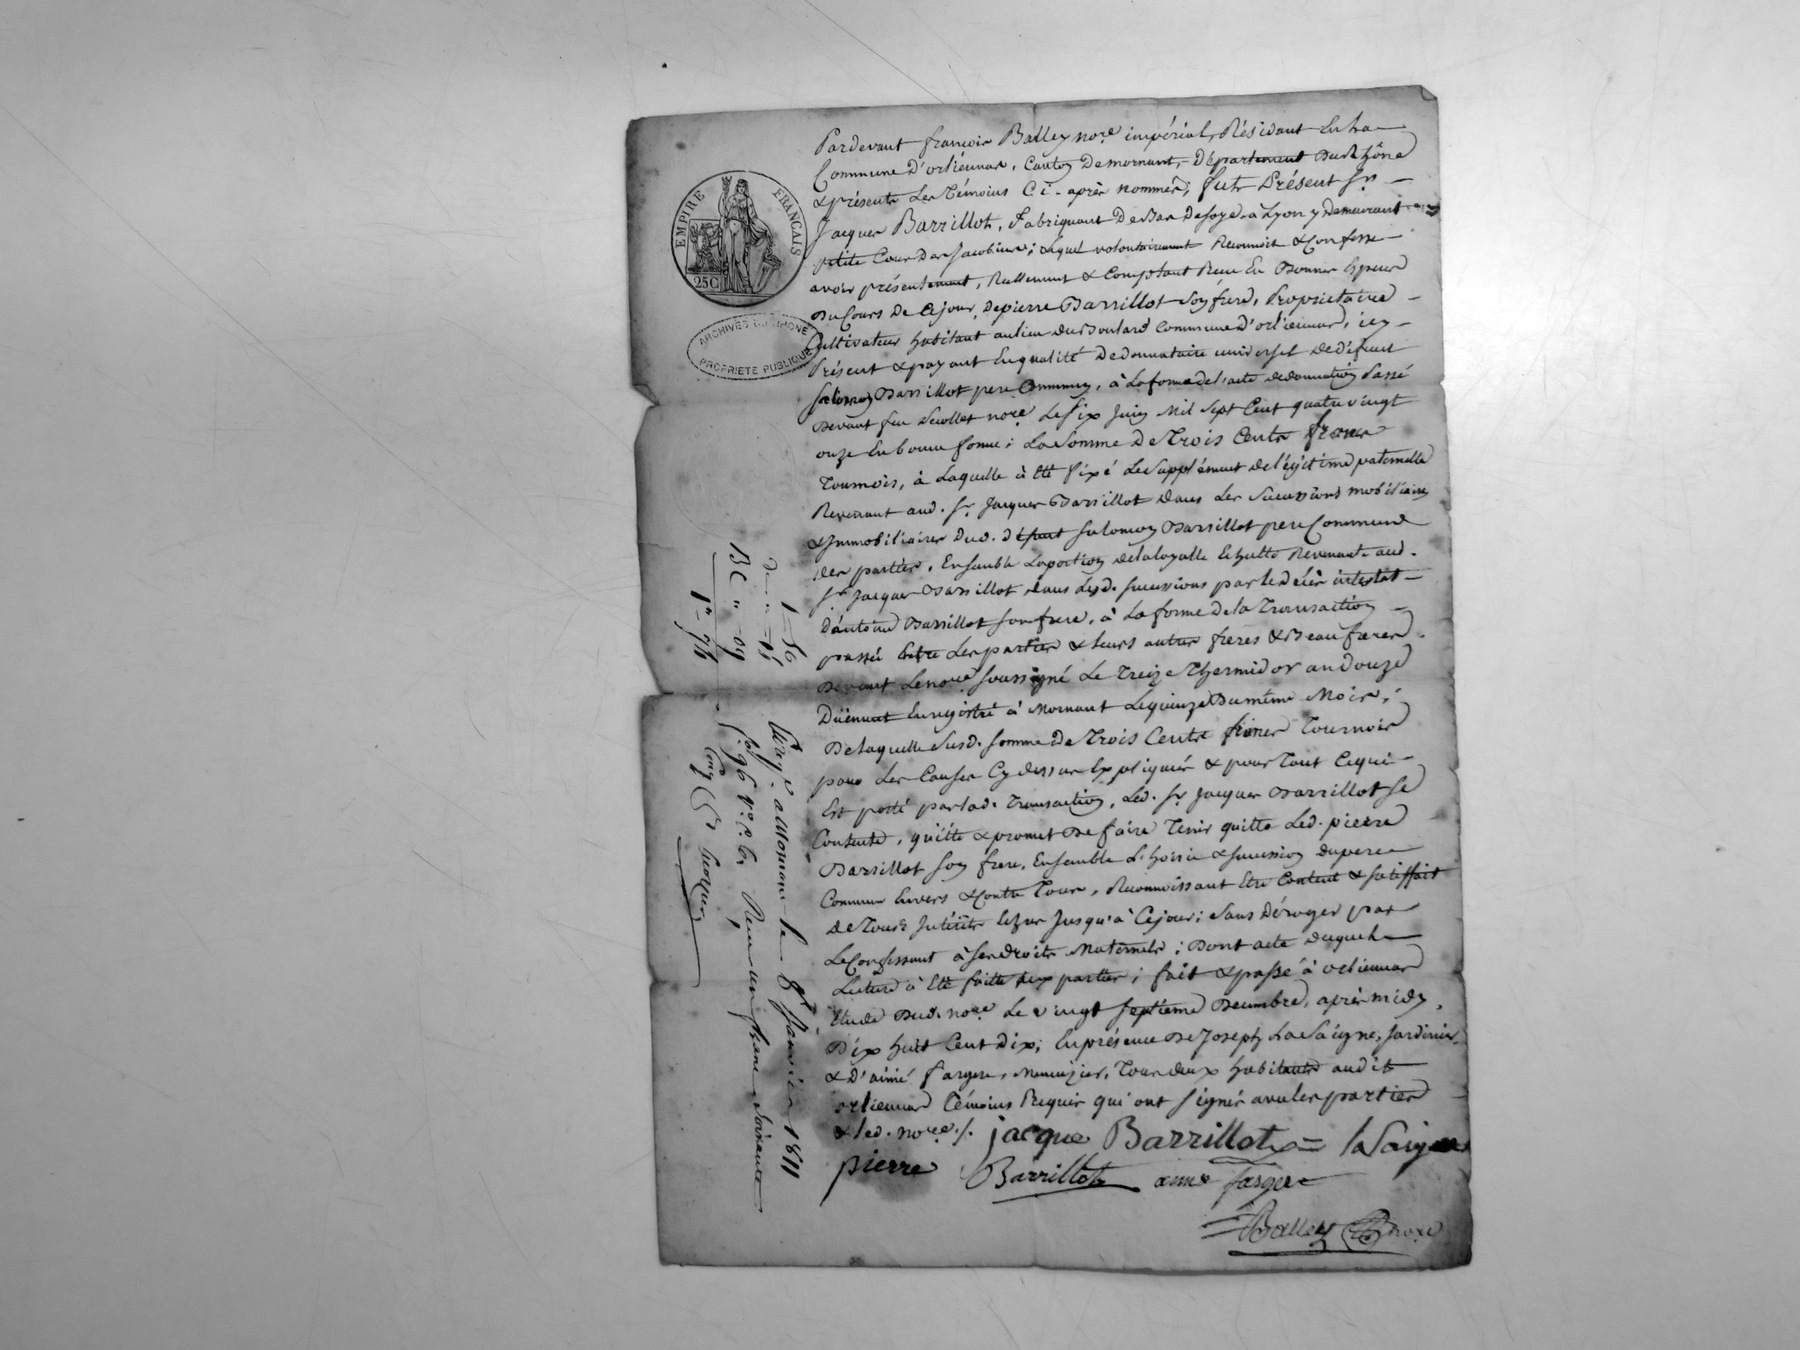 EMPIRE FRANÇAIS
25C
ARCHIVES DU RHONE
PROPRIETE PUBLIQUE
Pardevant françois Balley nore impérial, Résidant En la
Commune d'orliénas, Canton De mornant, Département Du Rhône
& présents Les Témoins Ci-après nommés; fut Présent Sr
Jacques Barrillot, Fabriquant De Bas De soye, à Lyon y demeurant
petite Cour Des Jacobins; Lequel volontairement Reconnoit & Confesse
avoir présentement, Réellement & Comptant Reçu En Bonnes Espèces
Du Cours De Ce jour, De pierre Barrillot Son frère, Propriétaire
Cultivateur habitant au lieu du Boulard Commune d'orliénas, icy
Présent & payant En qualité De donnataire universel De défunt
Salomon Barrillot pere Commun, à La forme de l'acte de donnation Passé
Devant feu Decollet nore Le Six Juin Mil Sept Cent quatre vingt
onze En bonne forme; La Somme De Trois Cents francs
Tournois, à Laquelle à Eté fixé Le Supplément de légitime paternelle
Revenant aud. Sr Jacques Barrillot dans Les Successions mobiliaires
& Immobiliaires Dud. défunt Salomon Barrillot pere Commun
des parties, Ensemble La portion de la loyalle Echutte Revenant aud.
Sr Jacques Barrillot dans Lesd. Successions par le décès intestat
d'antoine Barrillot Son frere, à La forme de la Transaction
passée Entre Les parties & leurs autres freres & Beau freres
Devant Le nore Soussigné Le Treize Thermidor an douze
Düement Enregistré à Mornant Le quinze Du même Mois;
De laquelle Susd. Somme De Trois Cents francs Tournois
pour Les Causes Cy dessus Expliquées & pour Tout Ce qui
Est porté par lad. Transaction, Led. Sr Jacques Barrillot Se
Contente, quitte & promet De faire Tenir quitte Led. pierre
Barrillot Son frere, Ensemble L'hoirie & Succession du pere
Commun Envers & Contre Tous, Reconnoissant Etre Content & Satisfait
De Tous Intérêts Echus Jusqu'à Ce jour; Sans Déroger par
Le Confessant à Ses Droits Maternels; Dont acte duquel
Lecture à Eté faitte aux parties; fait & passé à orliénas
Etude Dud. nore Le vingt Septieme Décembre, après midy,
Dix huit Cent Dix; En présence De Joseph La Saigne, Jardinier,
& D'aimé fargere, Menuizier, Tous deux habitants audit
orliénas Témoins Requis qui ont Signés avec les parties
& led. nore ./. jacque Barrillot laSaigne
pierre Barrillot aimé fargere
Balley nore
1=50
BC " 09
Enreg.é a Mornant le 8 Janvier 1811
fo. 96 Vo. C. 6. Reçu un franc soixante